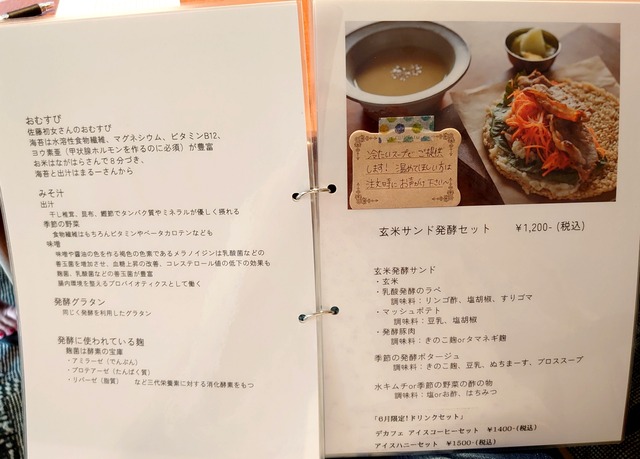 おむすび
佐藤初女さんのおむすび
海苔は水溶性食物繊維、マグネシウム、ビタミンB12、
ヨウ素葉（甲状腺ホルモンを作るのに必須）が豊富
お米はながはらさんで８分づき、
海苔と出汁はまるーさんから
みそ汁
出汁
干し椎茸、昆布、鰹節でタンパク質やミネラルが優しく摂れる
季節の野菜
食物繊維はもちろんビタミンやベータカロテンなども
味噌
味噌や醤油の色を作る褐色の色素であるメラノイジンは乳酸菌などの
善玉菌を増加させ、血糖上昇の改善、コレステロール値の低下の効果も
麹菌、乳酸菌などの善玉菌が豊富
腸内環境を整えるプロバイオティクスとして働く
発酵グラタン
同じく発酵を利用したグラタン
発酵に使われている麹
麹菌は酵素の宝庫
・アミラーゼ（でんぷん）
・プロテアーゼ（たんぱく質）
・リパーゼ（脂質） など三代栄養素に対する消化酵素をもつ
冷たいスープをご提供
します！温めてほしい方は
注文時にお声がけ下さい
玄米サンド発酵セット ¥1,200-(税込)
玄米発酵サンド
・玄米
・乳酸発酵のラペ
調味料：リンゴ酢、塩胡椒、すりゴマ
・マッシュポテト
調味料：豆乳、塩胡椒
・発酵豚肉
調味料：きのこ麹orタマネギ麹
季節の発酵ポタージュ
調味料：きのこ麹、豆乳、ぬちまーす、プロススープ
水キムチor季節の野菜の酢の物
調味料：塩orお酢、はちみつ
「6月限定!ドリンクセット」
デカフェ アイスコーヒーセット ¥1400-(税込)
アイスハニーセット ¥1500-(税込)